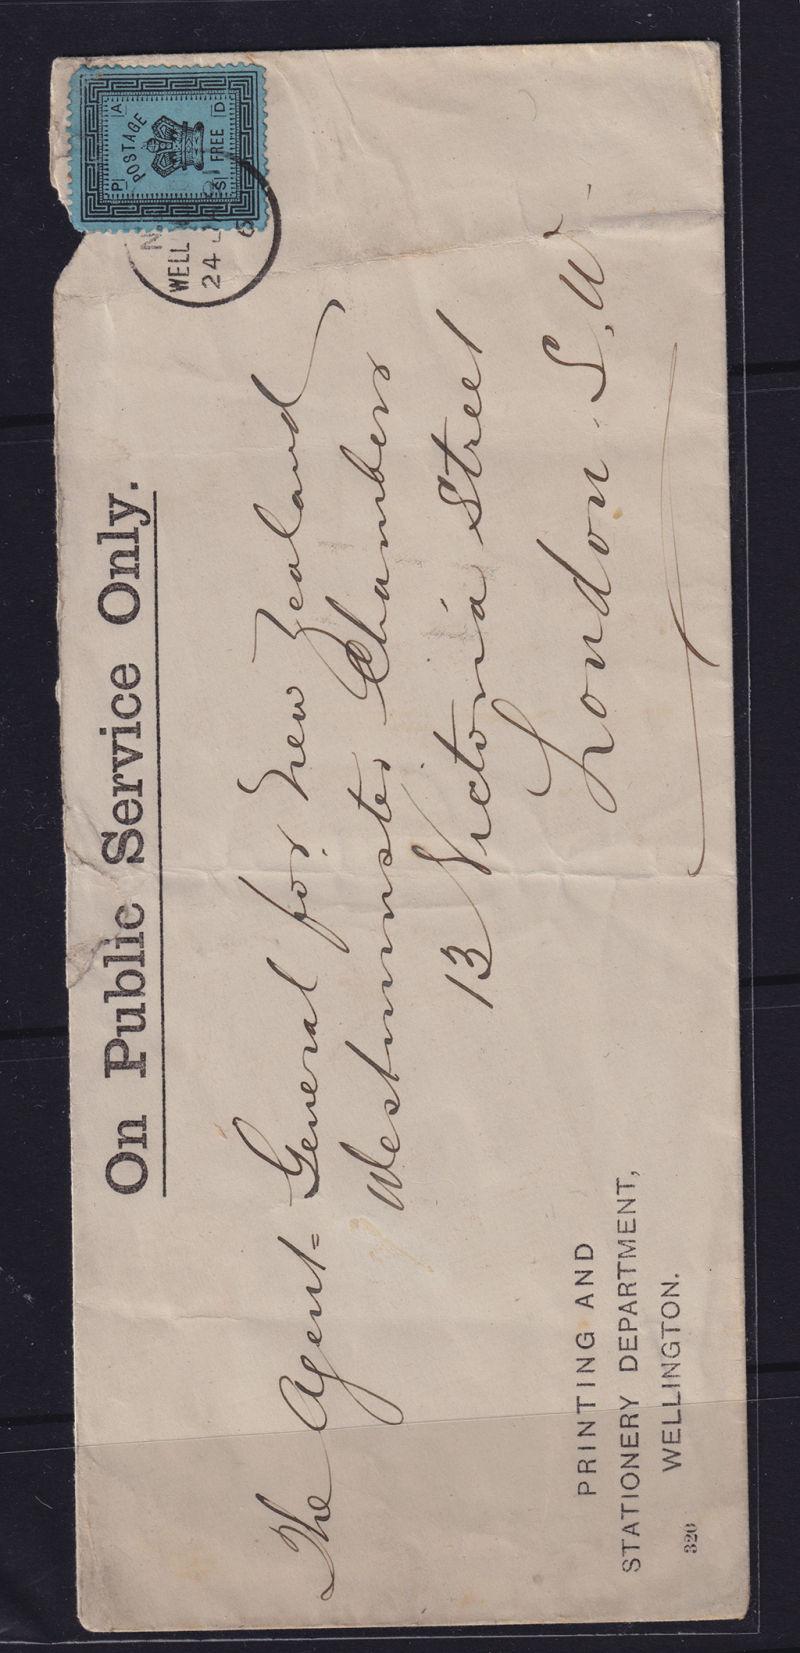 On Public Service Only.
P A
POSTAGE
S FREE D
N.
WELL
24
The Agent=General for New Zealand
Westminster Chambers
13 Victoria Street
London. S.W.
PRINTING AND
STATIONERY DEPARTMENT,
WELLINGTON.
326